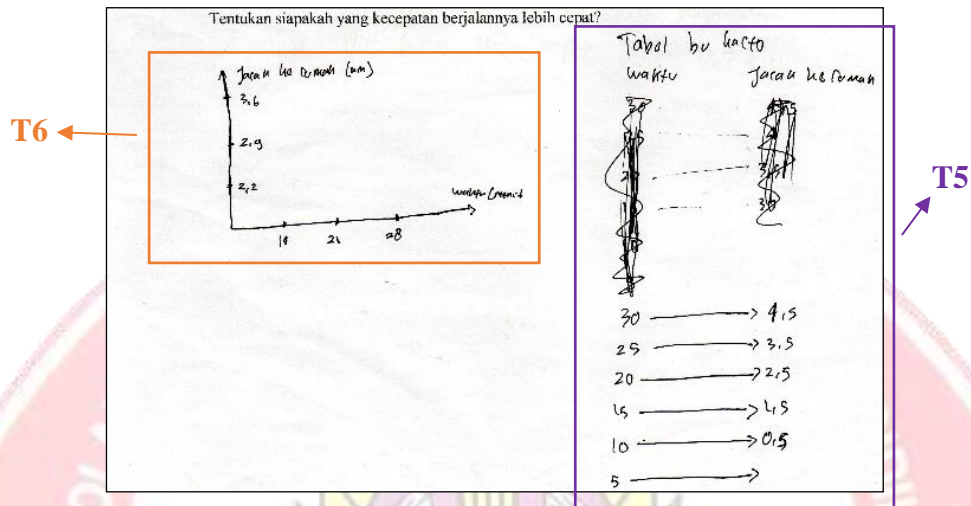 Tentukan siapakah yang kecepatan berjalannya lebih cepat?
T6
Jarak ke rumah (km)
3,6
2,9
2,2
waktu (menit
21
28
T5
Tabel bu
waktu
Jarak ke rumah
30 4,5
25 3,5
20 2,5
15 1,5
10 0,5
5